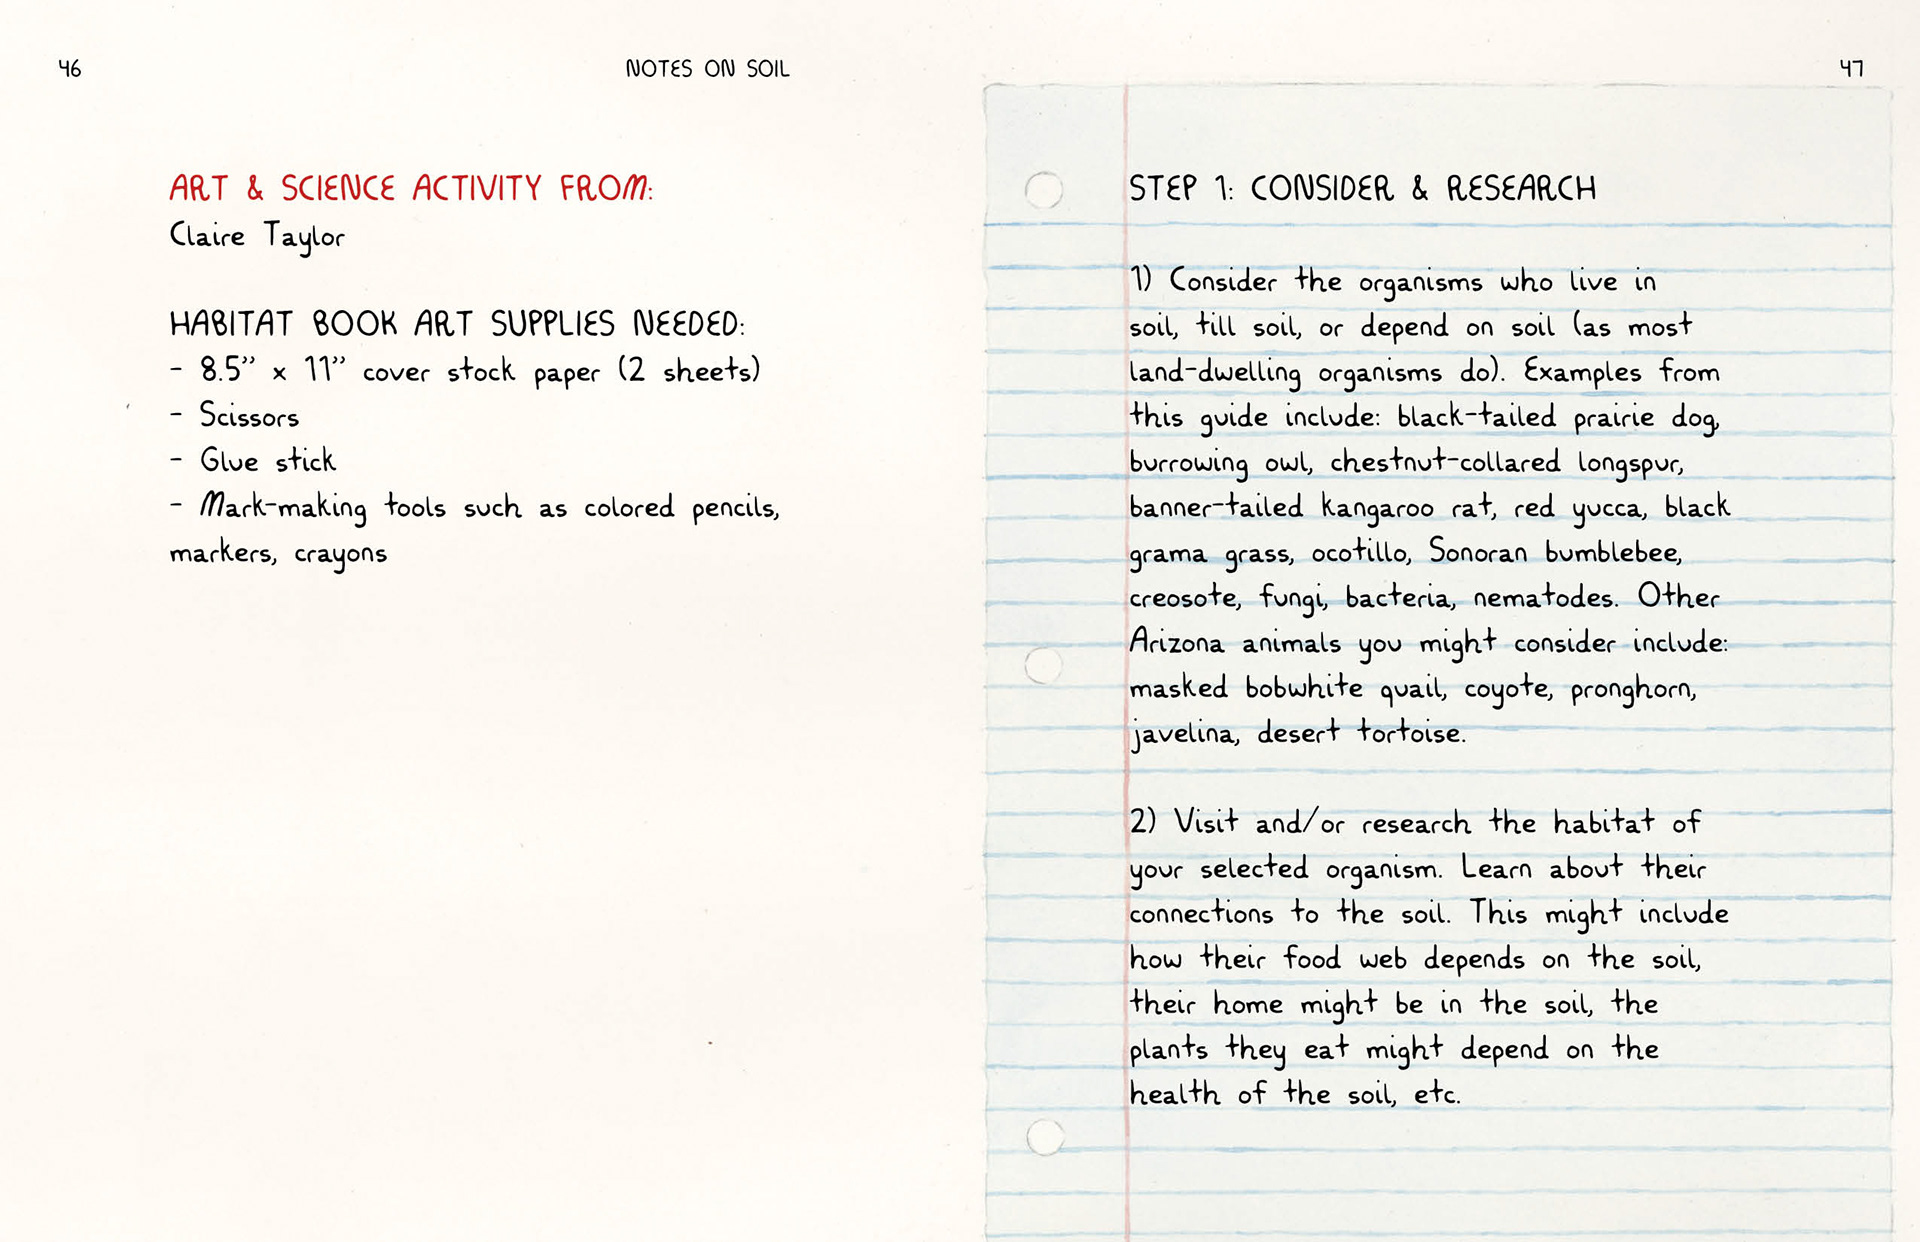 46
NOTES ON SOIL
ART & SCIENCE ACTIVITY FROM:
Claire Taylor
HABITAT BOOK ART SUPPLIES NEEDED:
- 8.5” x 11” cover stock paper (2 sheets)
- Scissors
- Glue stick
- Mark-making tools such as colored pencils,
markers, crayons
47
STEP 1: CONSIDER & RESEARCH
1) Consider the organisms who live in
soil, till soil, or depend on soil (as most
land-dwelling organisms do). Examples from
this guide include: black-tailed prairie dog,
burrowing owl, chestnut-collared longspur,
banner-tailed kangaroo rat, red yucca, black
grama grass, ocotillo, Sonoran bumblebee,
creosote, fungi, bacteria, nematodes. Other
Arizona animals you might consider include:
masked bobwhite quail, coyote, pronghorn,
javelina, desert tortoise.
2) Visit and/or research the habitat of
your selected organism. Learn about their
connections to the soil. This might include
how their food web depends on the soil,
their home might be in the soil, the
plants they eat might depend on the
health of the soil, etc.